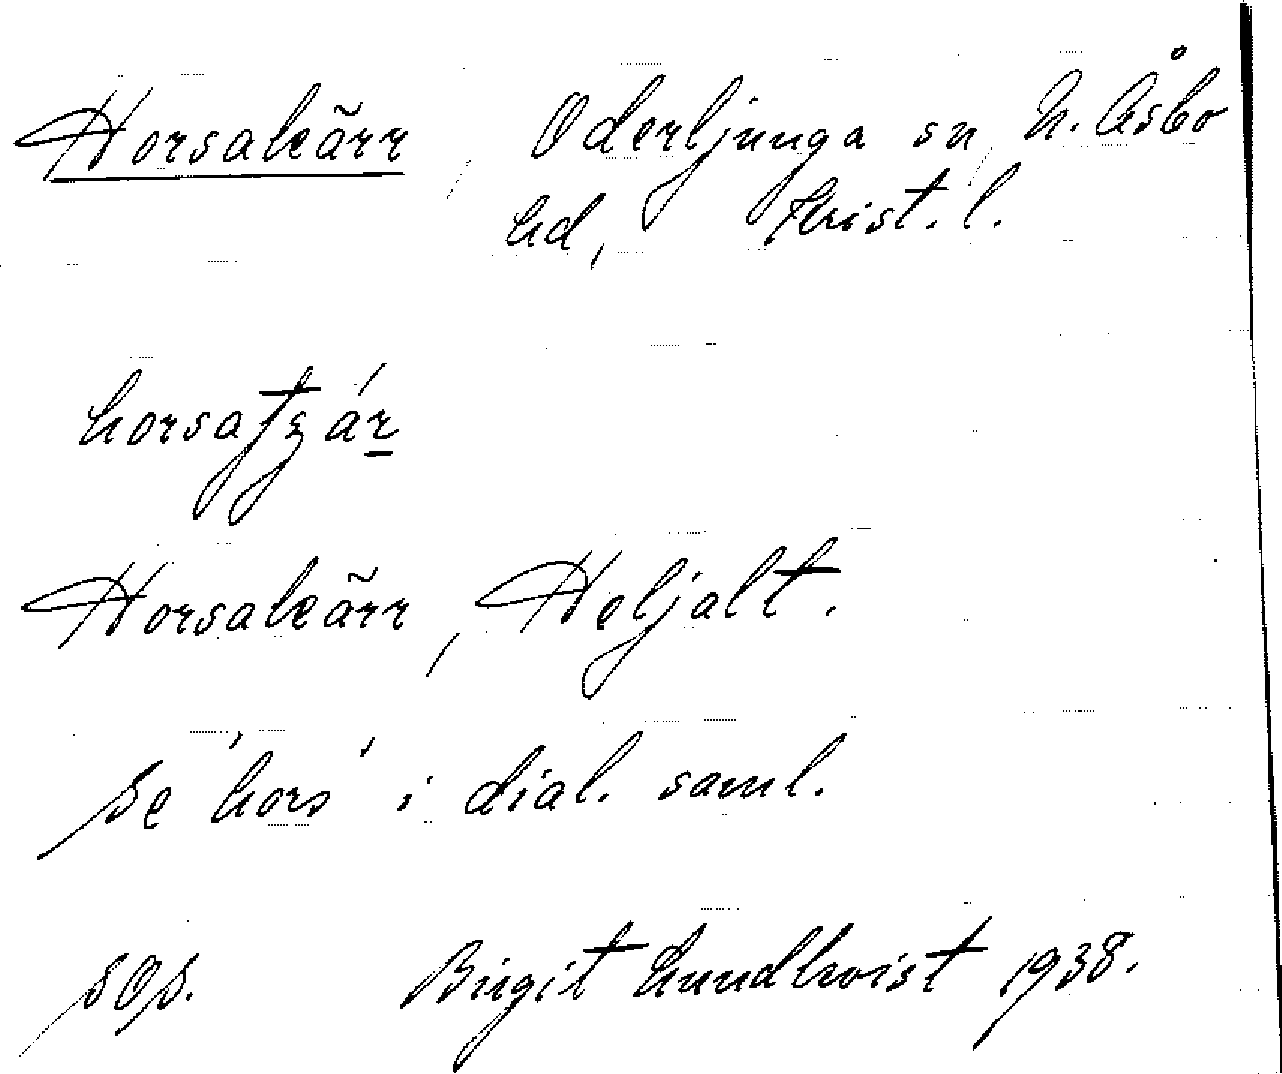 Horsakärr, Oderljunga sn, N. Åsbo
hd, Krist. l.
horsatʒár
Horsakärr, Heljalt.
Se 'hors' i dial. saml.
sOs. Birgit Lundkvist 1938.